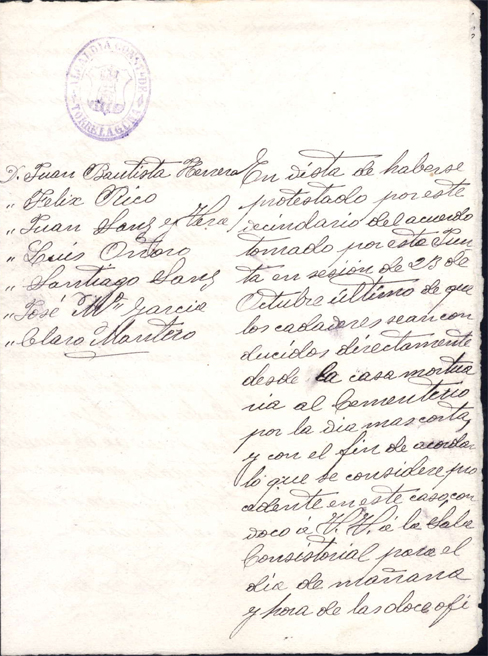 ALCALDIA CONST. DE
TORRELAGUNA
D. Juan Bautista Herrera
" Felix Rico
" Juan Sanz y Vera
" Luis Ontoro
" Santiago Sanz
" José Mª Garcia
" Claro Montero
En vista de haberse
protestado por este
vecundario del acuerdo
tomado por esta Jun
ta en sesión de 23 de
Octubre último de que
los cadaveres sean con
ducidos directamente
desde la casa mortuo
ria al Cementerio
por la via mas corta,
y con el fin de acordar
lo que se considere pro
cedente en este caso, con
voco á V.V. á la Sala
Consistorial para el
dia de mañana
y hora de las doce, ofi